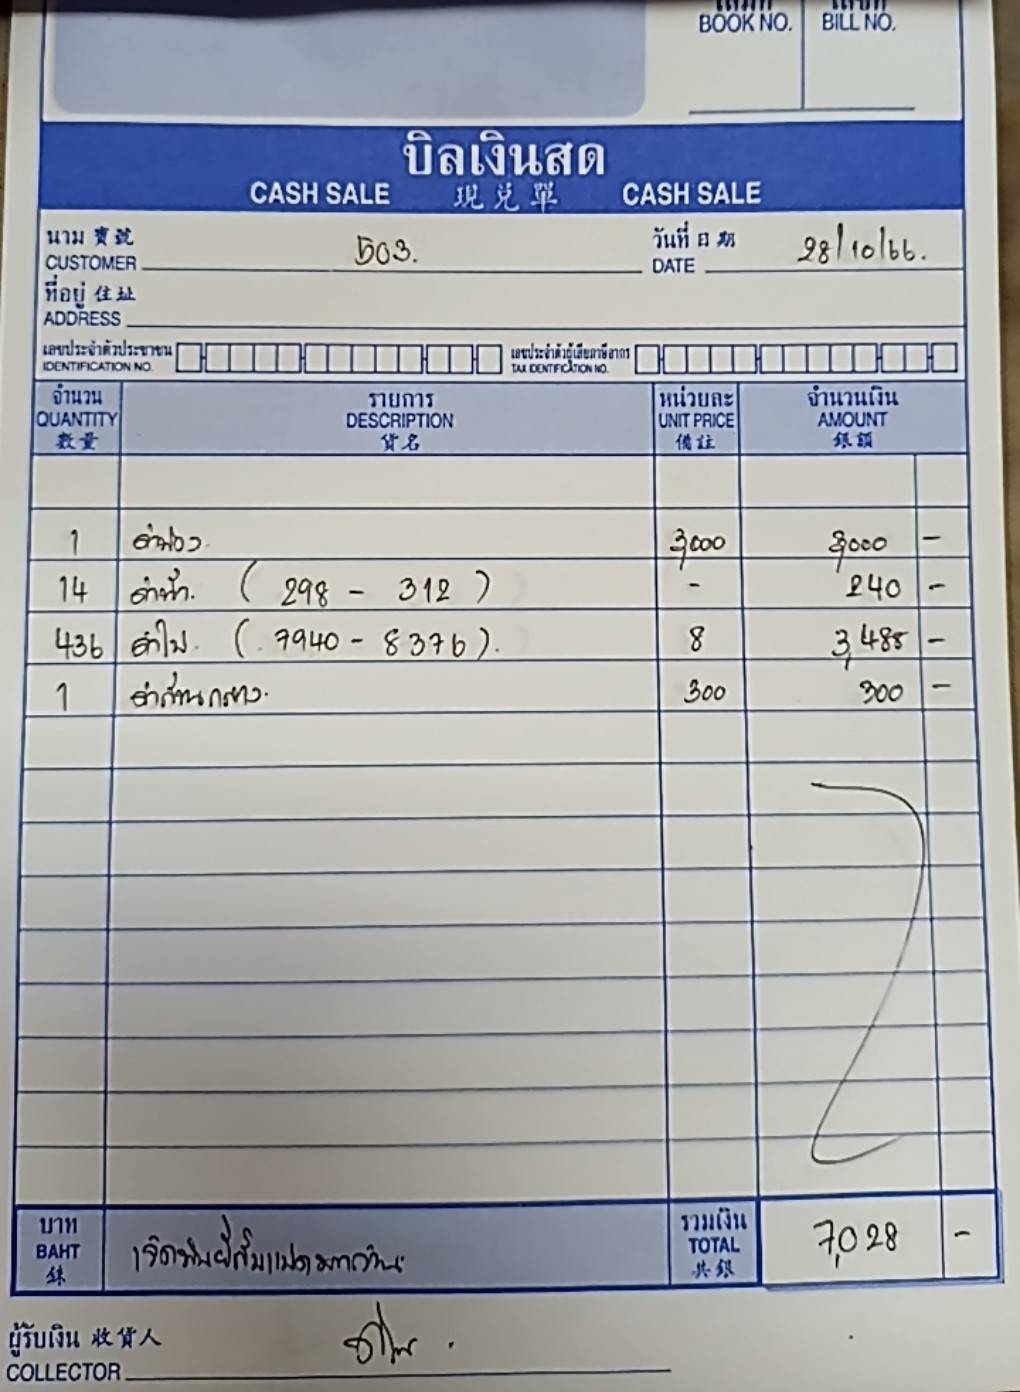 BOOK NO. BILL NO.
บิลเงินสด
CASH SALE 現兌單 CASH SALE
นาม 寳號 503. วันที่ 日期 28/10/66.
CUSTOMER DATE
ที่อยู่ 住址
ADDRESS
เลขประจำตัวประชาชน เลขประจำตัวผู้เสียภาษีอากร
IDENTIFICATION NO. TAX IDENTIFICATION NO.
จำนวน รายการ หน่วยละ จำนวนเงิน
QUANTITY DESCRIPTION UNIT PRICE AMOUNT
數量 貨名 備註 銀額
1 ค่าห้อง 3,000 3,000 -
14 ค่าน้ำ. ( 298 - 312 ) - 240 -
436 ค่าไฟ. ( 7940 - 8376 ). 8 3,488 -
1 ค่าส่วนกลาง. 300 300 -
บาท รวมเงิน
BAHT เจ็ดพันยี่สิบแปดบาทถ้วน TOTAL 7,028 -
銖 共銀
ผู้รับเงิน 收貨人
COLLECTOR